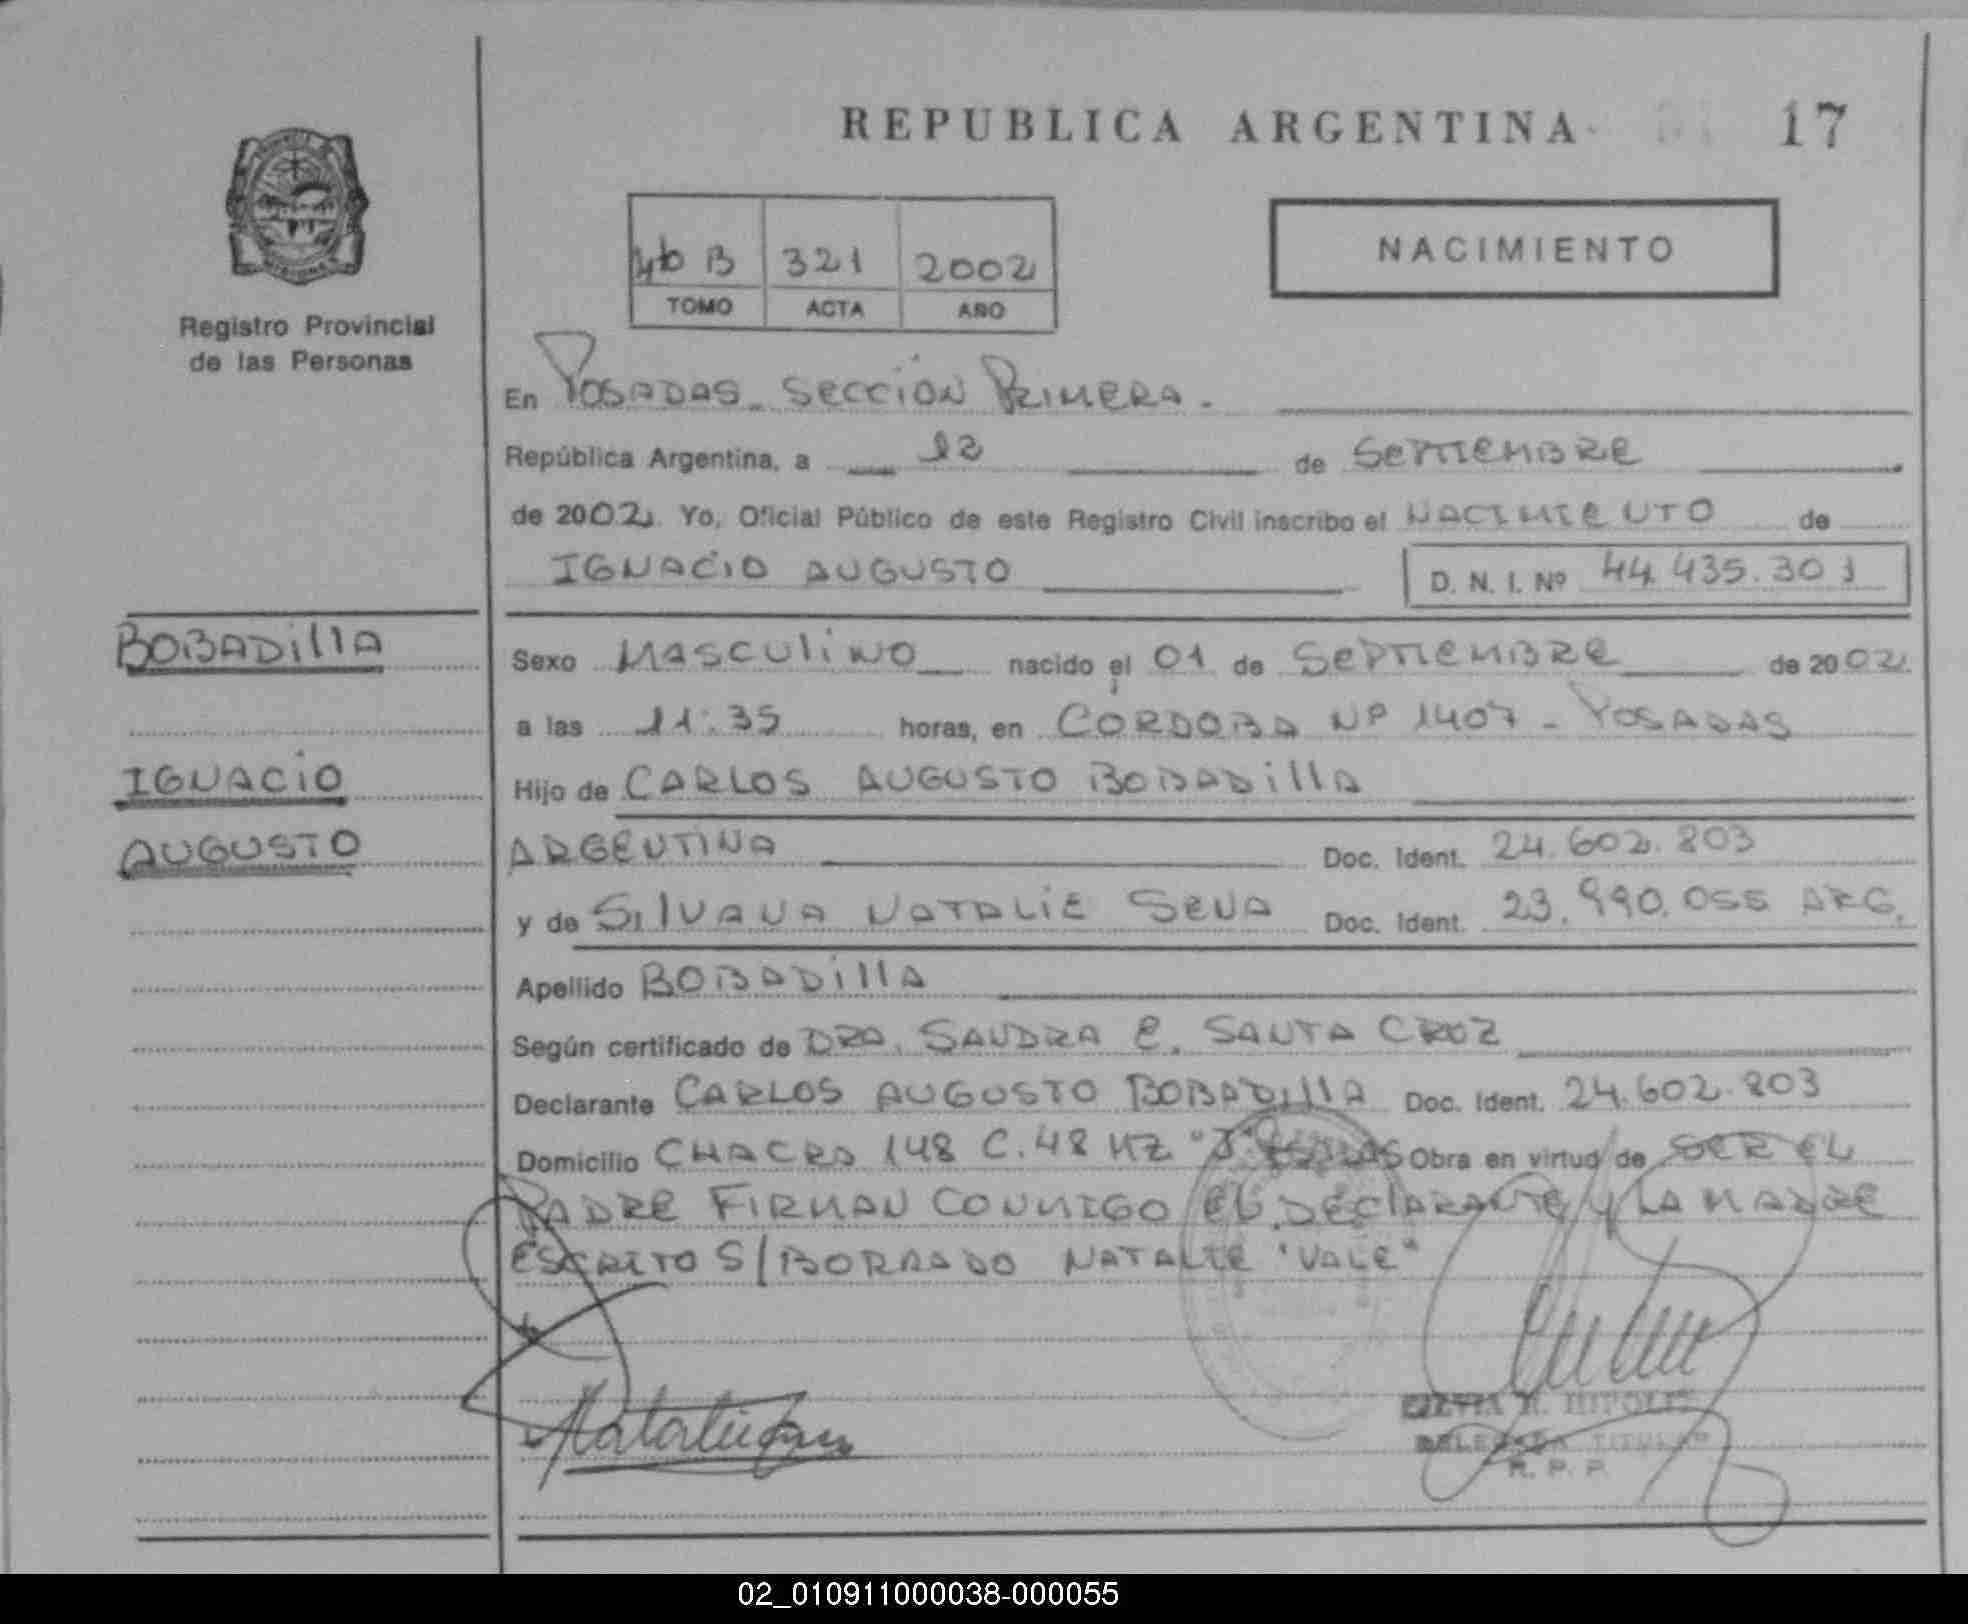 REPUBLICA ARGENTINA
17
B 321 2002
TOMO ACTA AÑO
NACIMIENTO
Registro Provincial
de las Personas
En POSADAS - SECCIÓN PRIMERA.
República Argentina, a 12 de SEPTIEMBRE
de 2002. Yo, Oficial Público de este Registro Civil inscribo el NACIMIENTO de
IGNACIO AUGUSTO D. N. I. Nº 44.435.301
BOBADILLA
Sexo MASCULINO nacido el 01 de SEPTIEMBRE de 2002
a las 11:35 horas, en CORDOBA Nº 1407 - POSADAS
IGNACIO
Hijo de CARLOS AUGUSTO BOBADILLA
AUGUSTO
ARGENTINA Doc. Ident. 24.602.803
y de SILVANA NATALIE SENA Doc. Ident. 23.990.055 ARG.
Apellido BOBADILLA
Según certificado de DRA. SANDRA E. SANTA CROZ
Declarante CARLOS AUGUSTO BOBADILLA Doc. Ident. 24.602.803
Domicilio CHACRA 148 C. 48 MZ "J" Obra en virtud de SER EL
PADRE FIRMAN CONMIGO EL DECLARANTE Y LA MADRE
ESCRITO S/BORRADO NATALIE "VALE"
DELEGADA TITULAR
R. P. P.
02_010911000038-000055